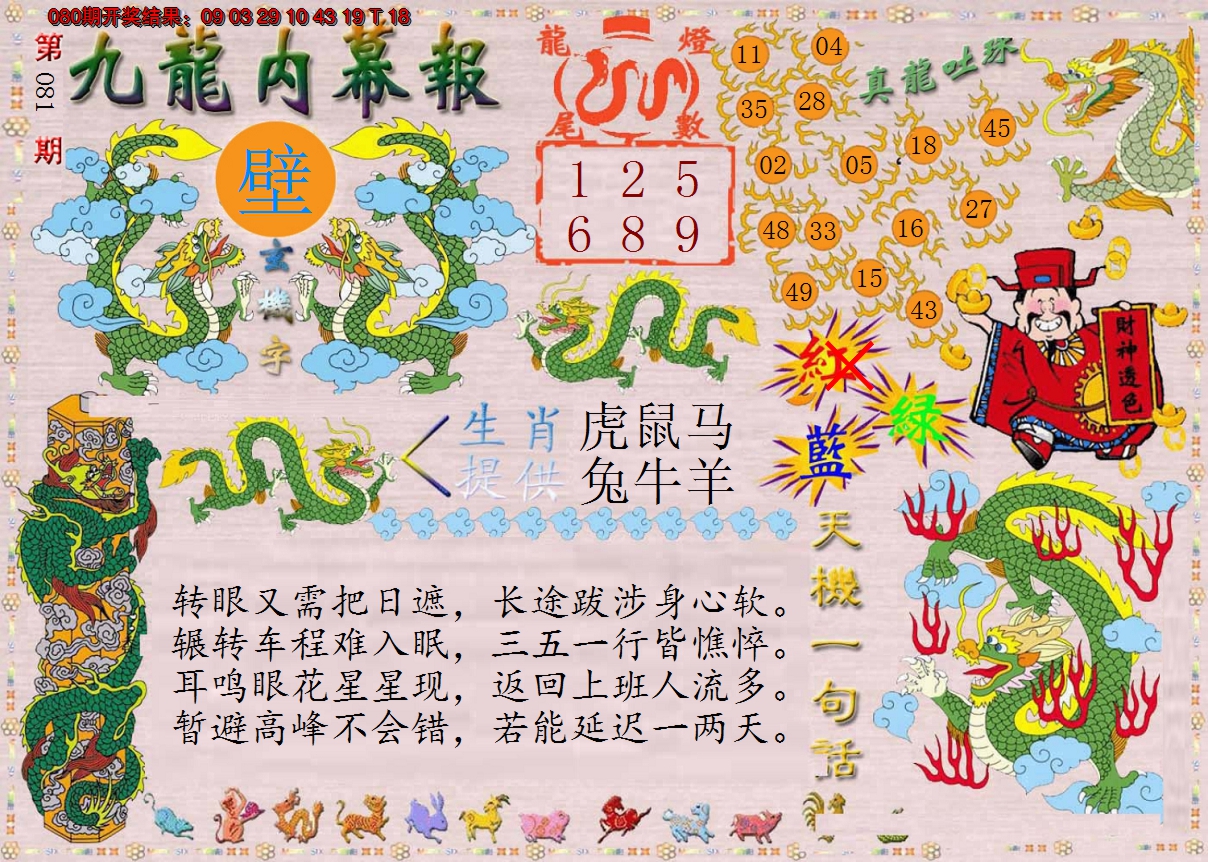 080期开奖结果：09 03 29 10 43 19 T 18
第081期
九龍内幕報
璧
玄機字
龍燈
尾數
1 2 5
6 8 9
真龍吐珠
11 04
35 28
18 45
02 05
48 33 16 27
49 15 43
紅
綠
藍
財神透色
生肖
提供
虎鼠马
兔牛羊
天機一句話
转眼又需把日遮，长途跋涉身心软。
辗转车程难入眠，三五一行皆憔悴。
耳鸣眼花星星现，返回上班人流多。
暂避高峰不会错，若能延迟一两天。